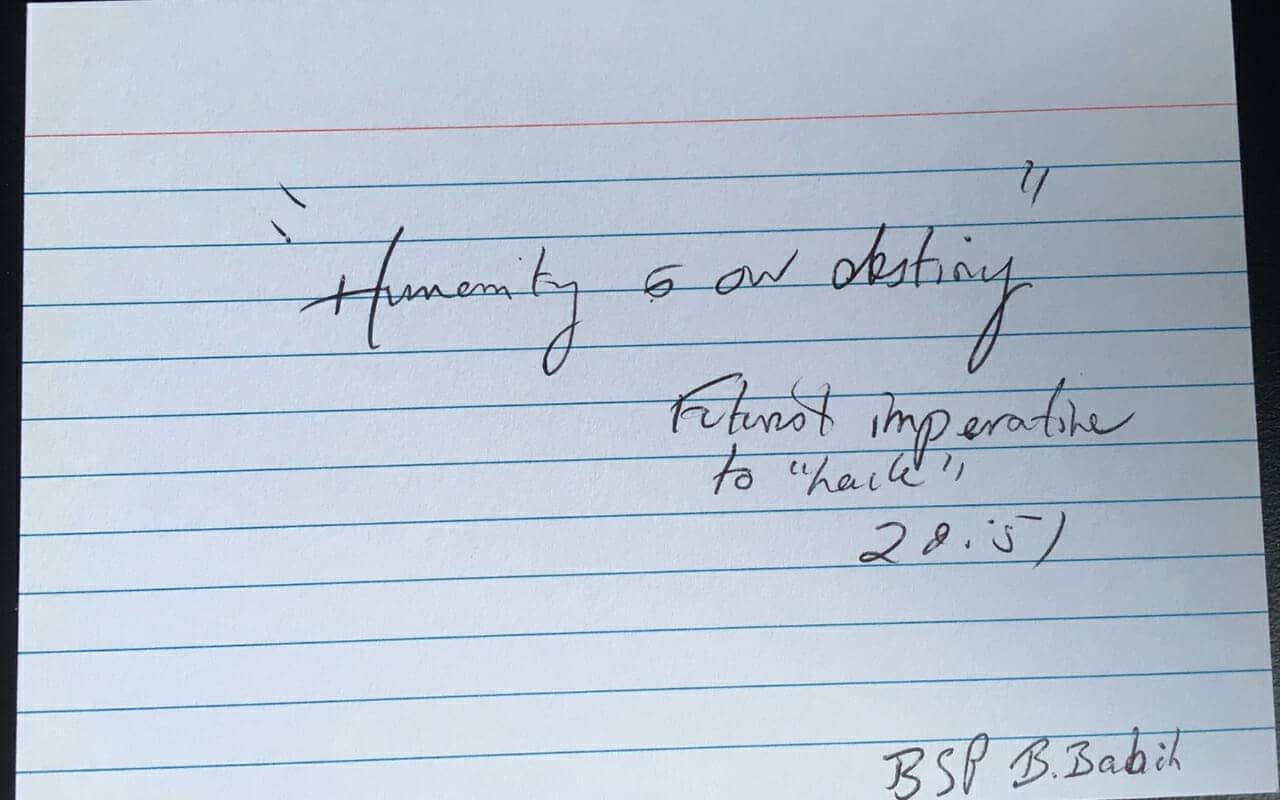 "Humanity is our destiny"
Futurist imperative
to "hack",
28:51
BSP B. Babich